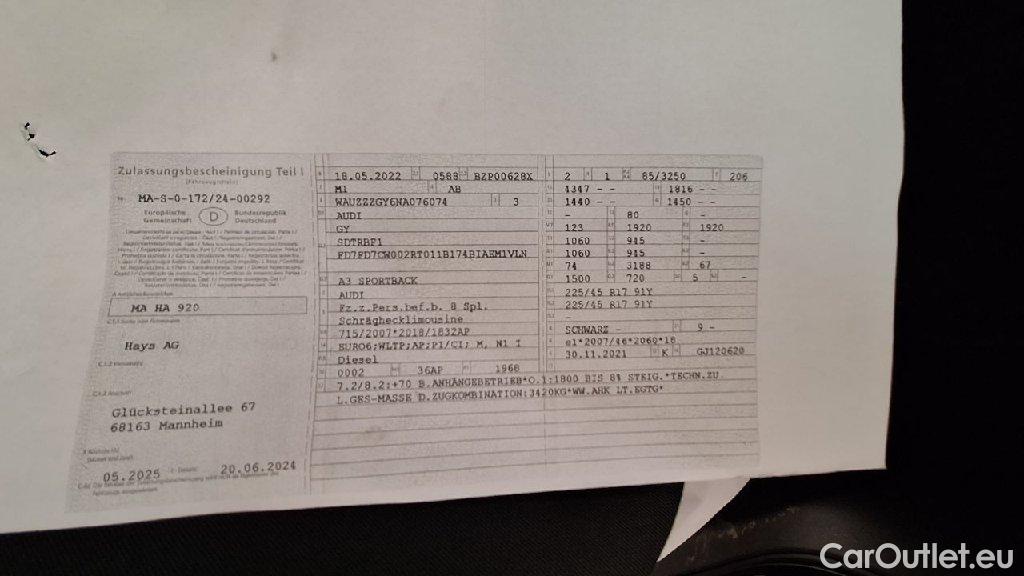 Zulassungsbescheinigung Teil I
(Fahrzeugschein)
MA-S-0-172/24-00292
Europäische Gemeinschaft D Bundesrepublik Deutschland
MA HA 920
Hays AG
Glücksteinallee 67
68163 Mannheim
05.2025 20.06.2024
18.05.2022 0588 BZP00628X
M1 AB
WAUZZZGY6NA076074 3
AUDI
GY
SDTRBF1
FD7FD7CW002RT011B174BIAEM1VLN
A3 SPORTBACK
AUDI
Fz.z.Pers.bef.b. 8 Spl.
Schräghecklimousine
715/2007*2018/1832AP
EURO6;WLTP;AP;PI/CI; M, N1 I
Diesel
0002 36AP 1968
2 1 85/3250 206
1347 - - 1816 - -
1440 - - 1450 - -
- 80 -
123 1920 1920
1060 915 -
1060 915 -
74 3188 67
1500 720 5 -
225/45 R17 91Y
225/45 R17 91Y
SCHWARZ - 9 -
e1*2007/46*2060*18
30.11.2021 K GJ120620
7.2/8.2:+70 B.ANHÄNGEBETRIEB*O.1:1800 BIS 8% STEIG.*TECHN.ZU
L.GES-MASSE D.ZUGKOMBINATION:3420KG*WW.AHK LT.EGTG*
CarOutlet.eu